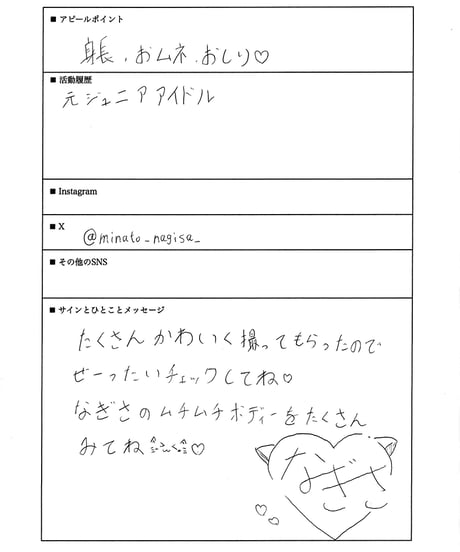 ■ アピールポイント
身長、おムネ、おしり♡
■ 活動履歴
元ジュニアアイドル
■ Instagram
■ X
@minato_nagisa_
■ その他のSNS
■ サインとひとことメッセージ
たくさん かわいく 撮ってもらったので
ぜーったいチェックしてね♡
なぎさのムチムチボディーをたくさん
みてね♡
なぎさ